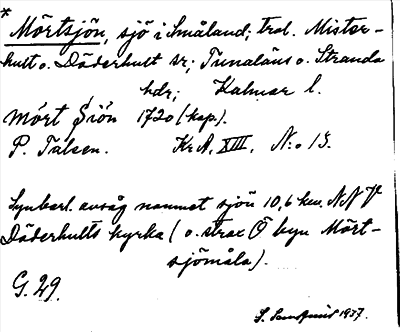 *
Mörtsjön, sjö i Småland; trol. Mister-
hult o. Döderhult sr; Tunaläns o. Stranda
hdr; Kalmar l.
Mört Siön 1720 (kop).
P. Talsen. Kr A, XIII, N:o 15.
Synbarl. avsåg namnet sjön 10,6 km NNV
Döderhults kyrka (o. strax Ö byn Mört-
sjömåla).
G. 29.
S. 1937.